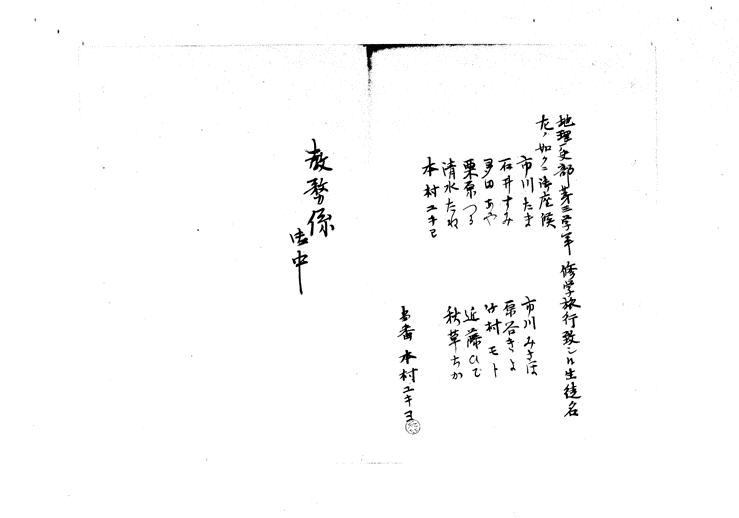 地理歴史部第三学年修学旅行致シ候生徒名
左ノ如クニ御座候
市川たま
石井すみ
多田あや
栗原つる
清水たね
本村ユキヨ
市川みさほ
原谷きよ
村モト
近藤ひで
秋草ちか
当番 本村ユキヨ
教務係
御中